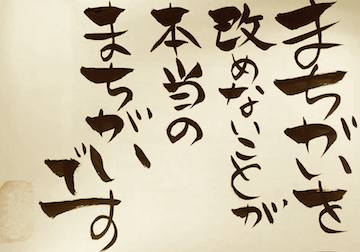 まちがいを
改めないことが
本当の
まちがい
です